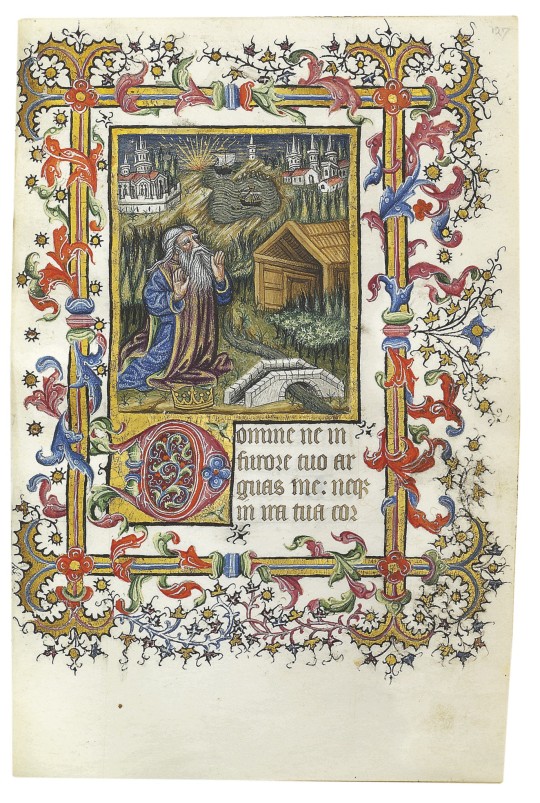 127
Domine ne in
furore tuo ar
guas me: neqꝫ
in ira tua cor